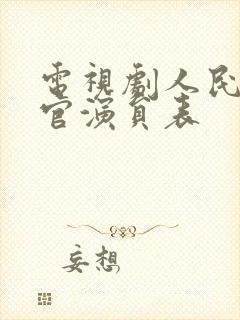 電視劇人民
官演員表
妄想